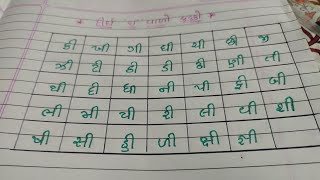 * દીર્ઘ ઈ વાળો કક્કો *
કી ખી ગી ઘી ચી છી જી
ઝી ટી ઠી ડી ઢી ણી તી
થી દી ધી ની પી ફી બી
ભી મી યી રી લી વી શી
ષી સી હી ળી ક્ષી જ્ઞી